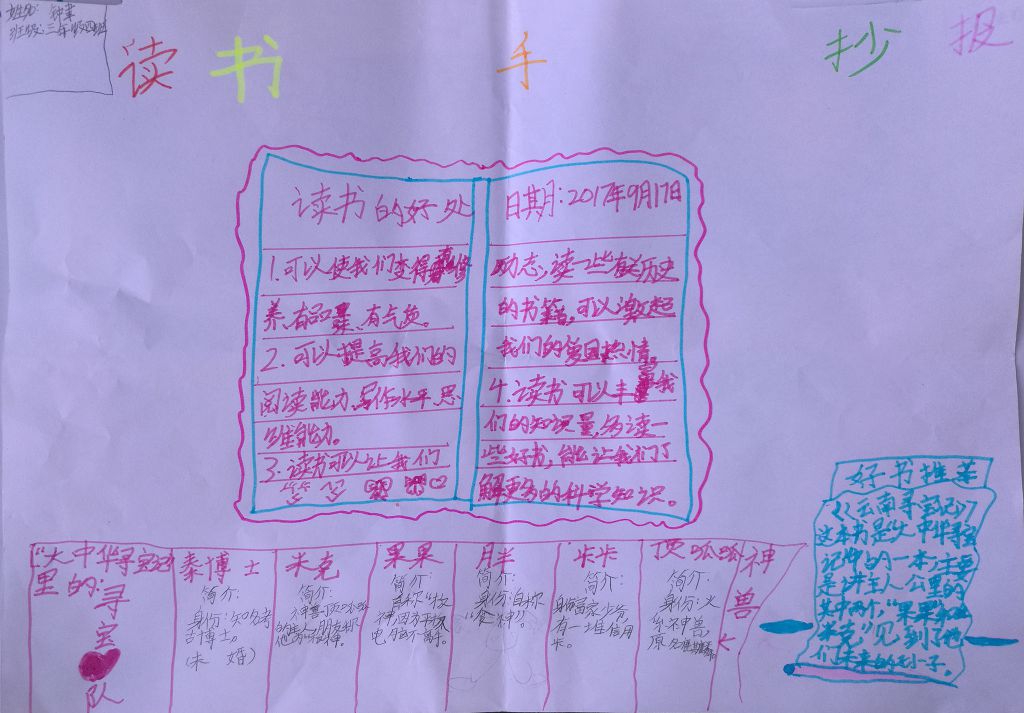 姓名: 钟
班级: 三年级四班
读 书 手 抄 报
读书的好处
1.可以使我们变得修
养、有品、有气质。
2.可以提高我们的
阅读能力、写作水平、思
维能力。
3.读书可以让我们
日期:2017年9月17日
动态,读一些有关历史
的书籍,可以激起
我们的爱国热情。
4.读书可以丰我
们的知识量,多读一
些好书,能让我们了
解更多的科学知识。
好书推荐
《《云南寻宝记》》
这本书是“大中华寻宝
记”中的一本,主要
是讲主人公里的
其中两个“果果和
米克”见到了他
们未来的小子。
“大中华寻宝记”
里的:寻
宝
队
秦博士
简介:
身份:知名考
古博士。
(未婚)
米克
简介:
神兽顶呱呱
果果
简介:
自称“
胖
简介:
身份:自称
“食神”。
卡卡
简介:
身份富家少爷,
有一堆信用
卡。
顶呱呱
简介:
身份:火
系神兽,
神
兽